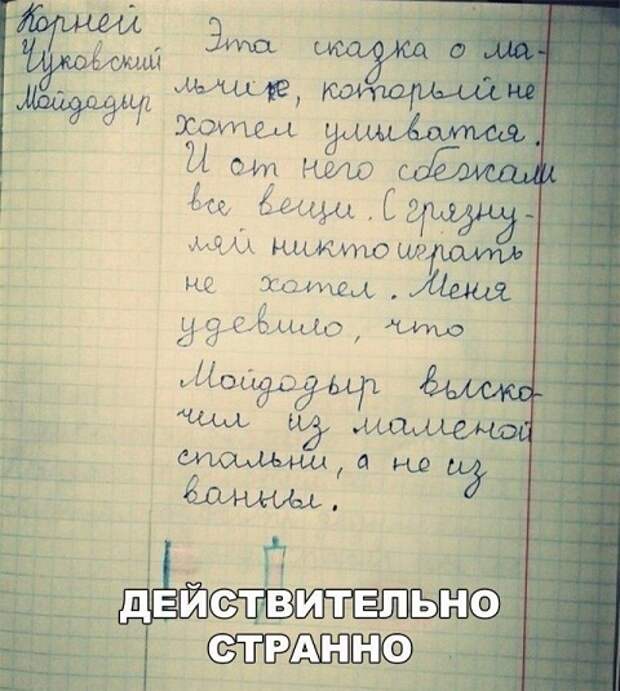 Корней
Чуковский
Мойдодыр
Эта сказка о ма-
льчике, который не
хотел умыватся.
И от него сбежали
все вещи. С грязну-
лей никто играть
не хотел. Меня
удевило, что
Мойдодыр выско
чил из маменой
спальни, а не из
ванны.
ДЕЙСТВИТЕЛЬНО
СТРАННО